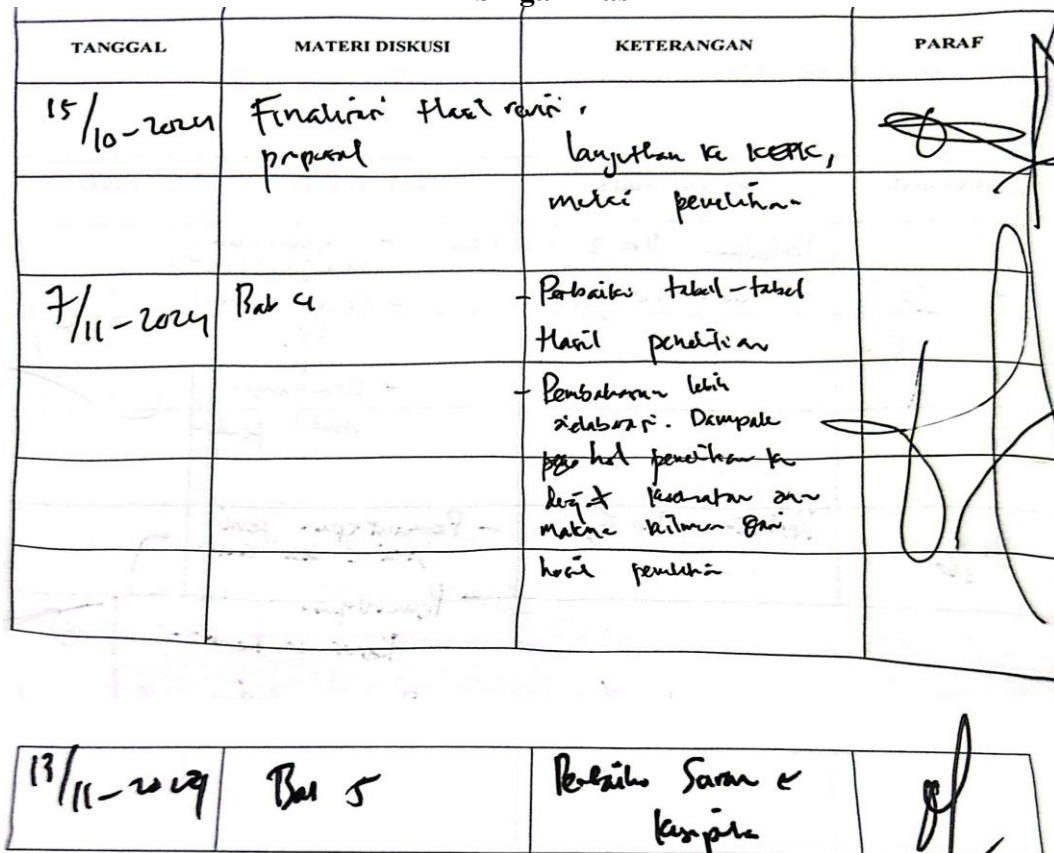 TANGGAL MATERI DISKUSI KETERANGAN PARAF
15/10-2024 Finalisasi Hasil revisi
proposal lanjutkan ke KEPK,
mulai penelitian
7/11-2024 Bab 4 - Perbaiki tabel-tabel
Hasil penelitian
- Pembahasan lebih
dielaborasi. Dampak
hasil penelitian ke
derajat kesehatan dan
makna keilmuan dari
hasil penelitian
13/11-2024 Bab 5 Perbaiki Saran &